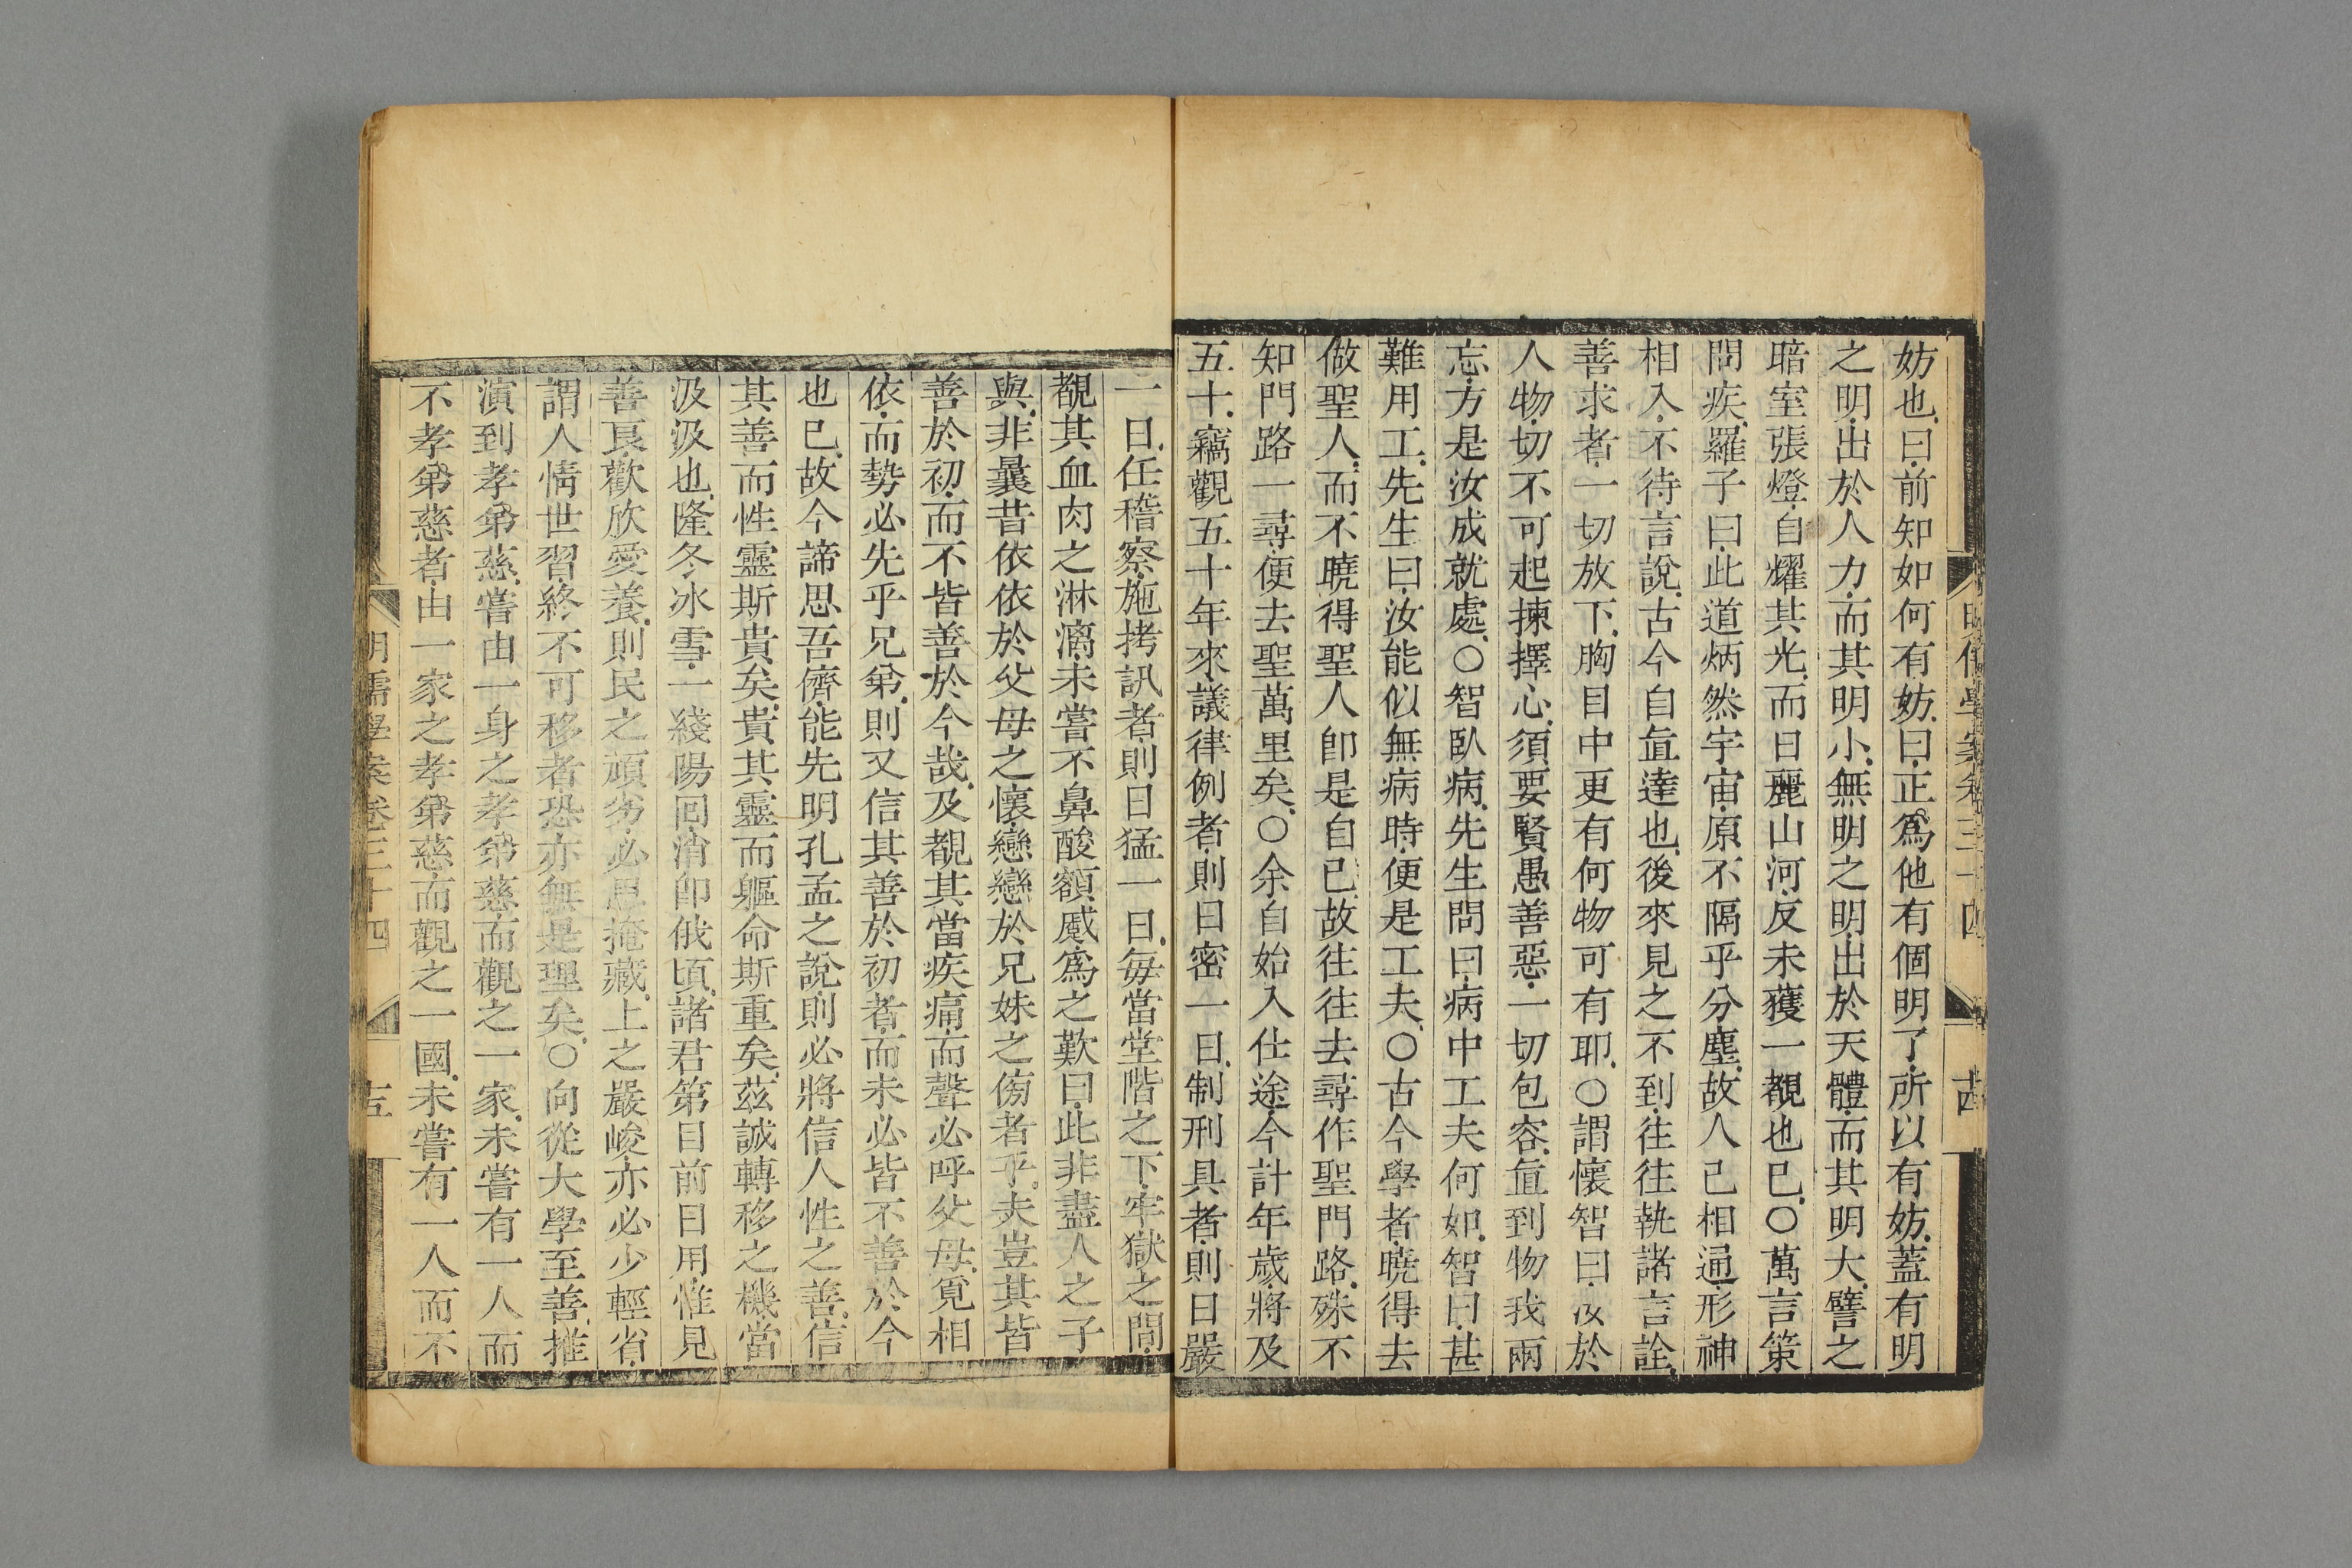 妨也曰前知如何有妨曰正爲他有個明了所以有妨蓋有明
之明出於人力而其明小無明之明出於天體而其明大譬之
暗室張燈自耀其光而日麗山河反未獲一覩也已○萬言策
問疾羅子曰此道炳然宇宙原不隔乎分塵故人己相通形神
相入不待言說古今自直達也後來見之不到往往執諸言詮
善求者一切放下胸目中更有何物可有耶○謂懷智曰汝於
人物切不可起揀擇心須要賢愚善惡一切包容直到物我兩
忘方是汝成就處○智臥病先生問曰病中工夫何如智曰甚
難用工先生曰汝能似無病時便是工夫○古今學者曉得去
做聖人而不曉得聖人卽是自己故往往去尋作聖門路殊不
知門路一尋便去聖萬里矣○余自始入仕途今計年歲將及
五十竊觀五十年來議律例者則日密一日制刑具者則日嚴
明儒學案卷三十四
十四
一日任稽察施拷訊者則日猛一日每當堂階之下牢獄之間
覩其血肉之淋漓未嘗不鼻酸額蹙爲之歎曰此非盡人之子
與非曩昔依依於父母之懷戀戀於兄妹之傍者乎夫豈其皆
善於初而不皆善於今哉及覩其當疾痛而聲必呼父母覓相
依而勢必先乎兄弟則又信其善於初者而未必皆不善於今
也已故今諦思吾儕能先明孔孟之說則必將信人性之善信
其善而性靈斯貴矣貴其靈而軀命斯重矣茲誠轉移之機當
汲汲也隆冬冰雪一綫陽回消卽俄頃諸君第目前日用惟見
善良歡欣愛養則民之頑劣必思掩藏上之嚴峻亦必少輕省
謂人情世習終不可移者恐亦無是理矣○向從大學至善推
演到孝弟慈嘗由一身之孝弟慈而觀之一家未嘗有一人而
不孝弟慈者由一家之孝弟慈而觀之一國未嘗有一人而不
明儒學案卷三十四